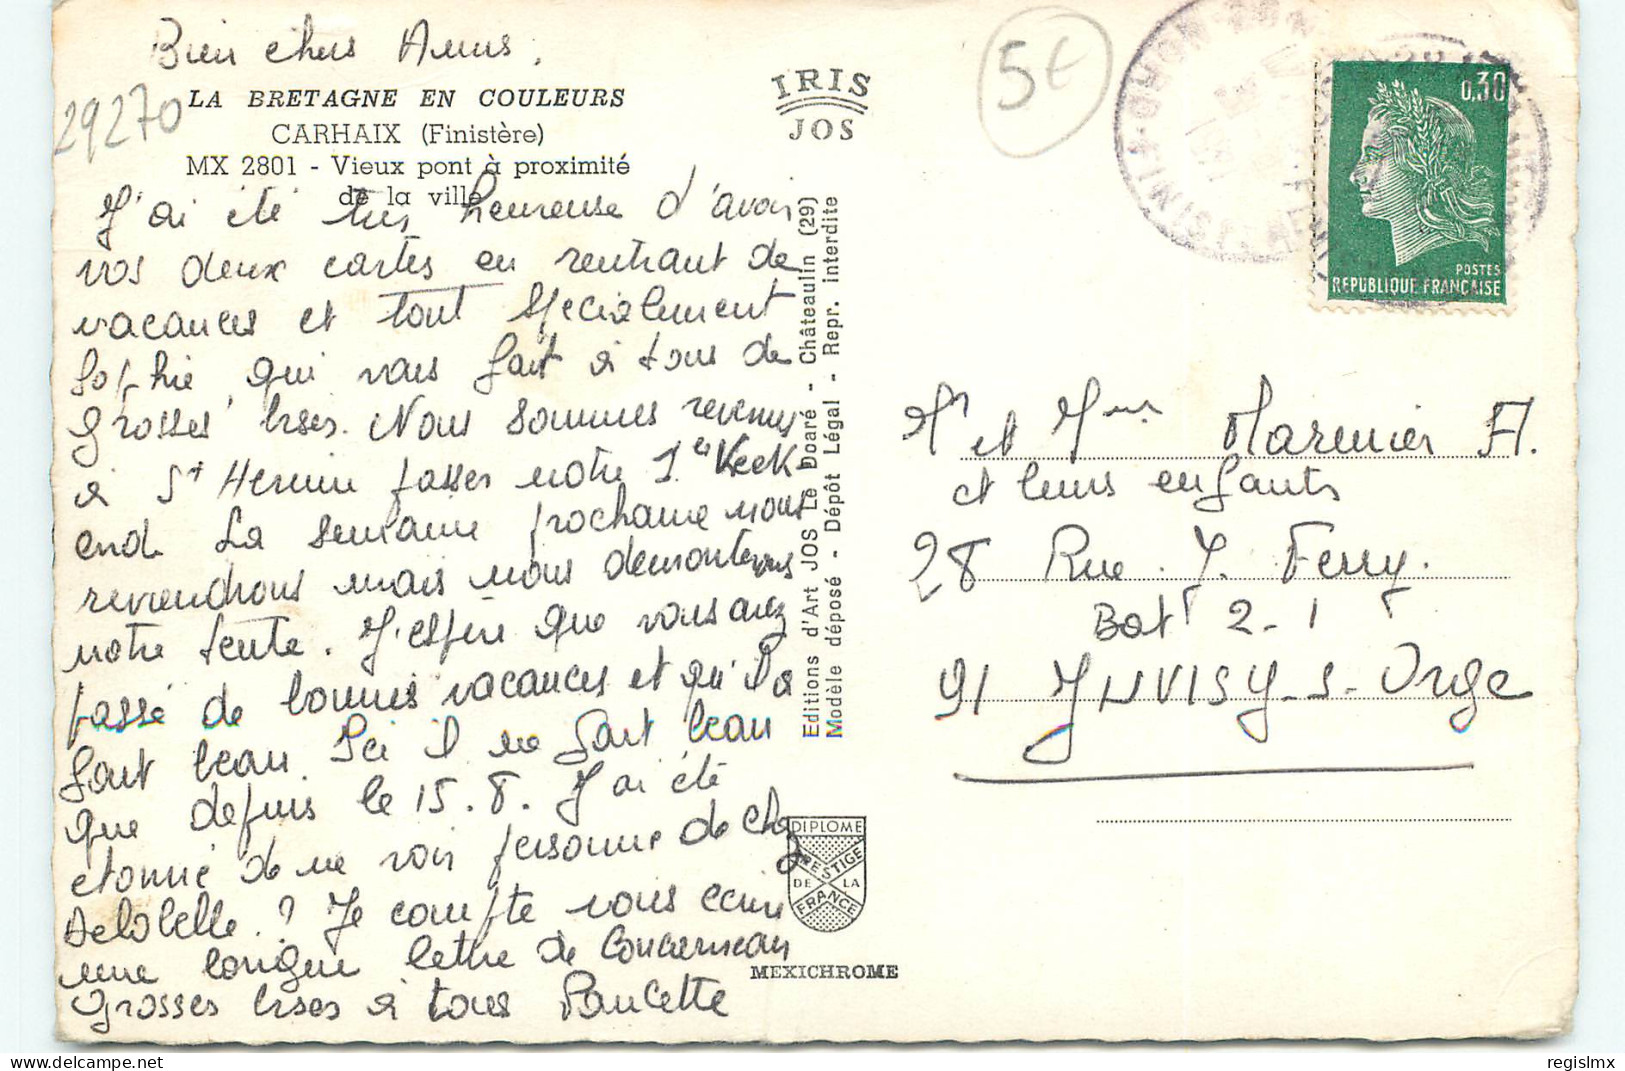 Bien chers Amis,
29270
LA BRETAGNE EN COULEURS
CARHAIX (Finistère)
MX 2801 - Vieux pont à proximité
de la ville
J'ai été très heureuse d'avoir
vos deux cartes en rentrant de
vacances et tout spécialement
Sophie qui vous fait à tous de
Grosses bises. Nous sommes revenus
à St Hernin passer notre 1er Week-
end. La semaine prochaine nous
reviendrons mais nous démonterons
notre tente. J'espère que vous avez
passé de bonnes vacances et qu'il a
fait beau. Ici il ne fait beau
que depuis le 15.8. J'ai été
étonnée de ne voir personne de chez
Delobelle ? Je compte vous écrire
une longue lettre de Concarneau
Grosses bises à tous Paucette
IRIS
JOS
Editions d'Art JOS Le Doaré - Châteaulin (29)
Modèle déposé - Dépôt Légal - Repr. interdite
DIPLOME
PRESTIGE
DE LA
FRANCE
MEXICHROME
5€
0,30
POSTES
REPUBLIQUE FRANÇAISE
Mr et Mme Marinier A.
et leurs enfants
28 Rue J. Ferry.
Bat 2-1
91 JUVISY-s-Orge
regislmx